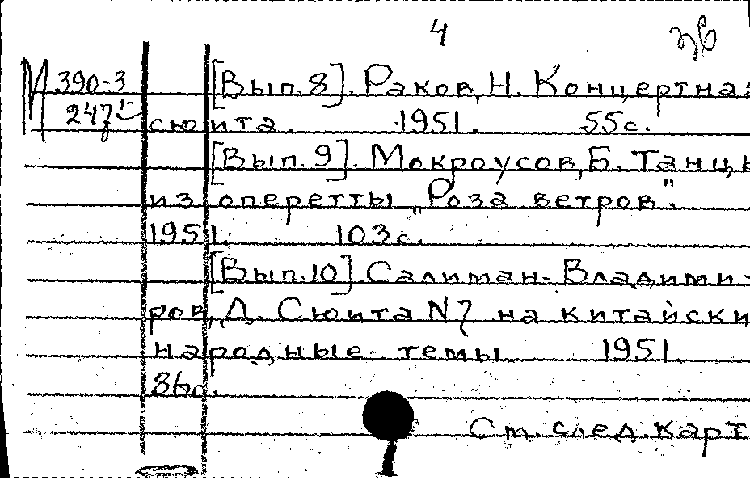 4
М 390-3 [Вып. 8]. Раков, Н. Концертная
247 сюита. 1951. 55с.
[Вып. 9]. Мокроусов, Б. Танцы
из оперетты "Роза ветров".
1951. 103с.
[Вып. 10] Салиман-Владими-
ров, Д. Сюита N7 на китайски
народные темы 1951
86с.
См. след. карт